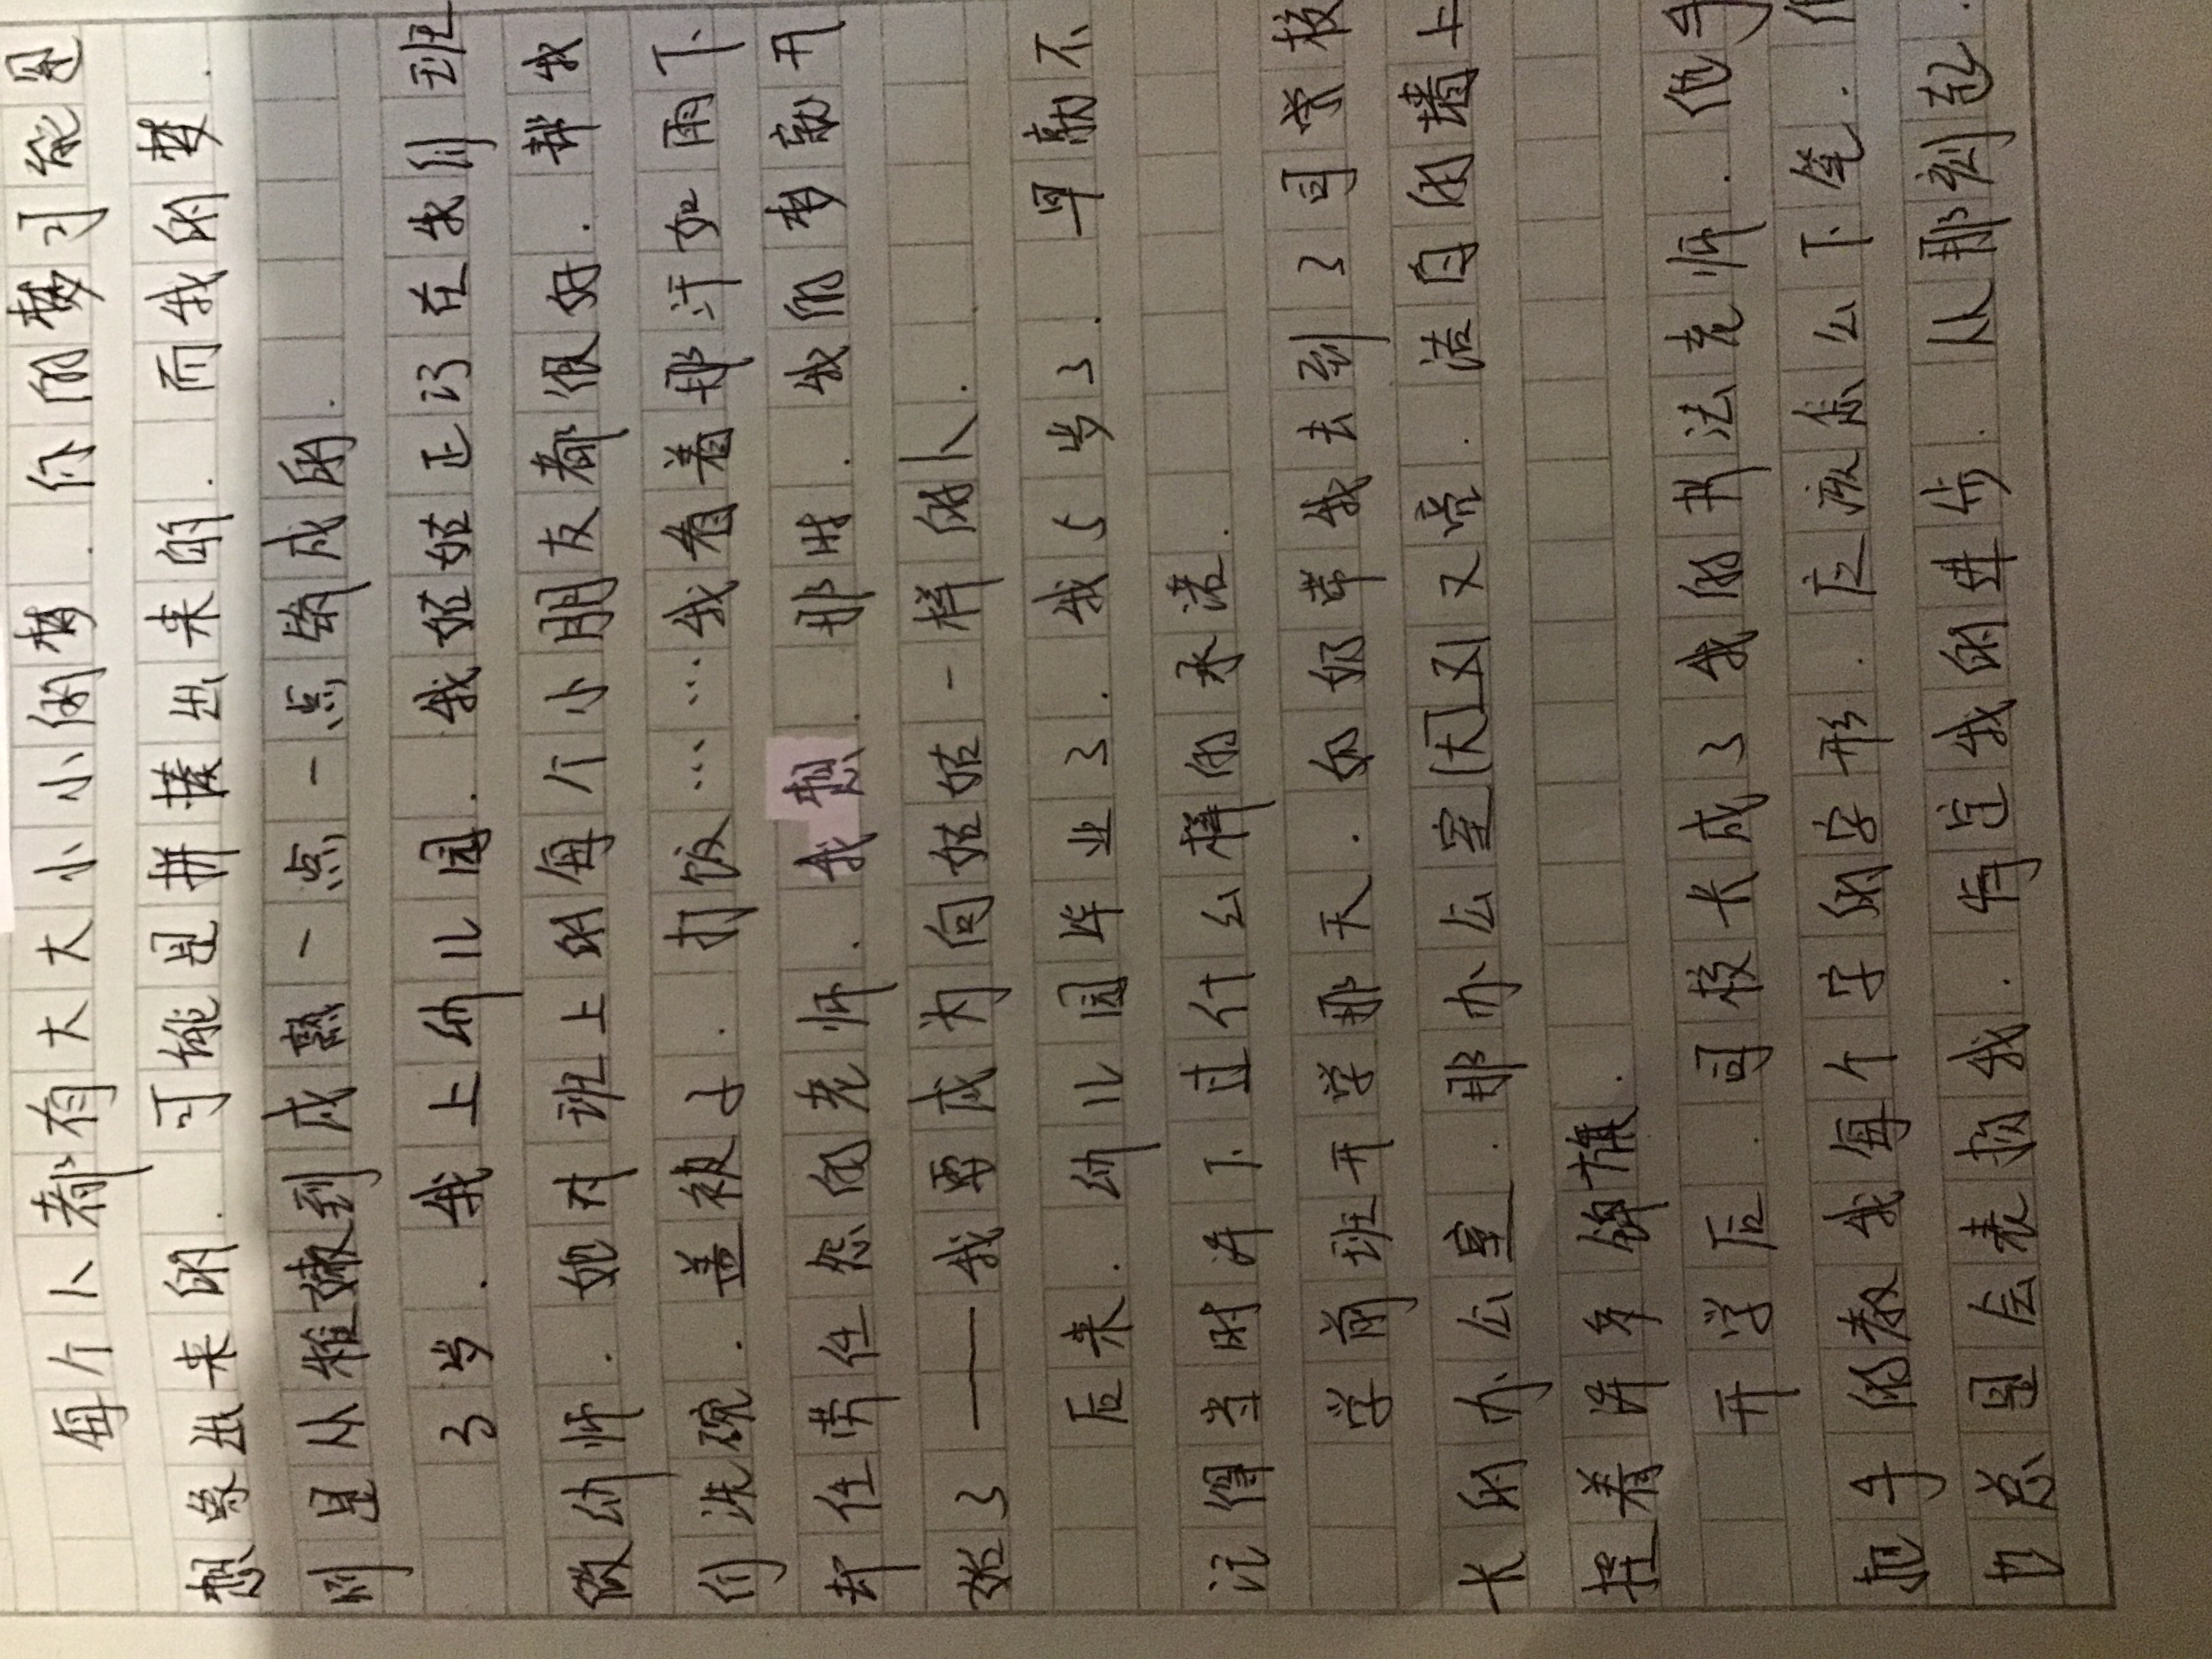 每个人都有大大小小的梦.你的梦可能是
想象出来的.可能是拼接出来的.而我的梦.
则是从稚嫩到成熟一点一点编成的.
3岁.我上幼儿园.我姑姑正巧在我们班
做幼师.她对班上的每个小朋友都很好.帮我
们洗碗.盖被子.打饭……我看着那汗如雨下
却任劳任怨的老师.我想.那时.我的梦就开
始了——我要成为向姑姑一样的人.
后来.幼儿园毕业了.我5岁了.早就不
记得当时许下过什么样的承诺.
学前班开学那天.奶奶带我去到了司学校
长的办公室.那办公室又大又亮.洁白的墙上
挂着许多锦旗.
开学后.司校长成了我的书法老师.他手
把手的教我每个字的字形.应该怎么下笔.
他总是会表扬我.肯定我的进步.从那刻起.